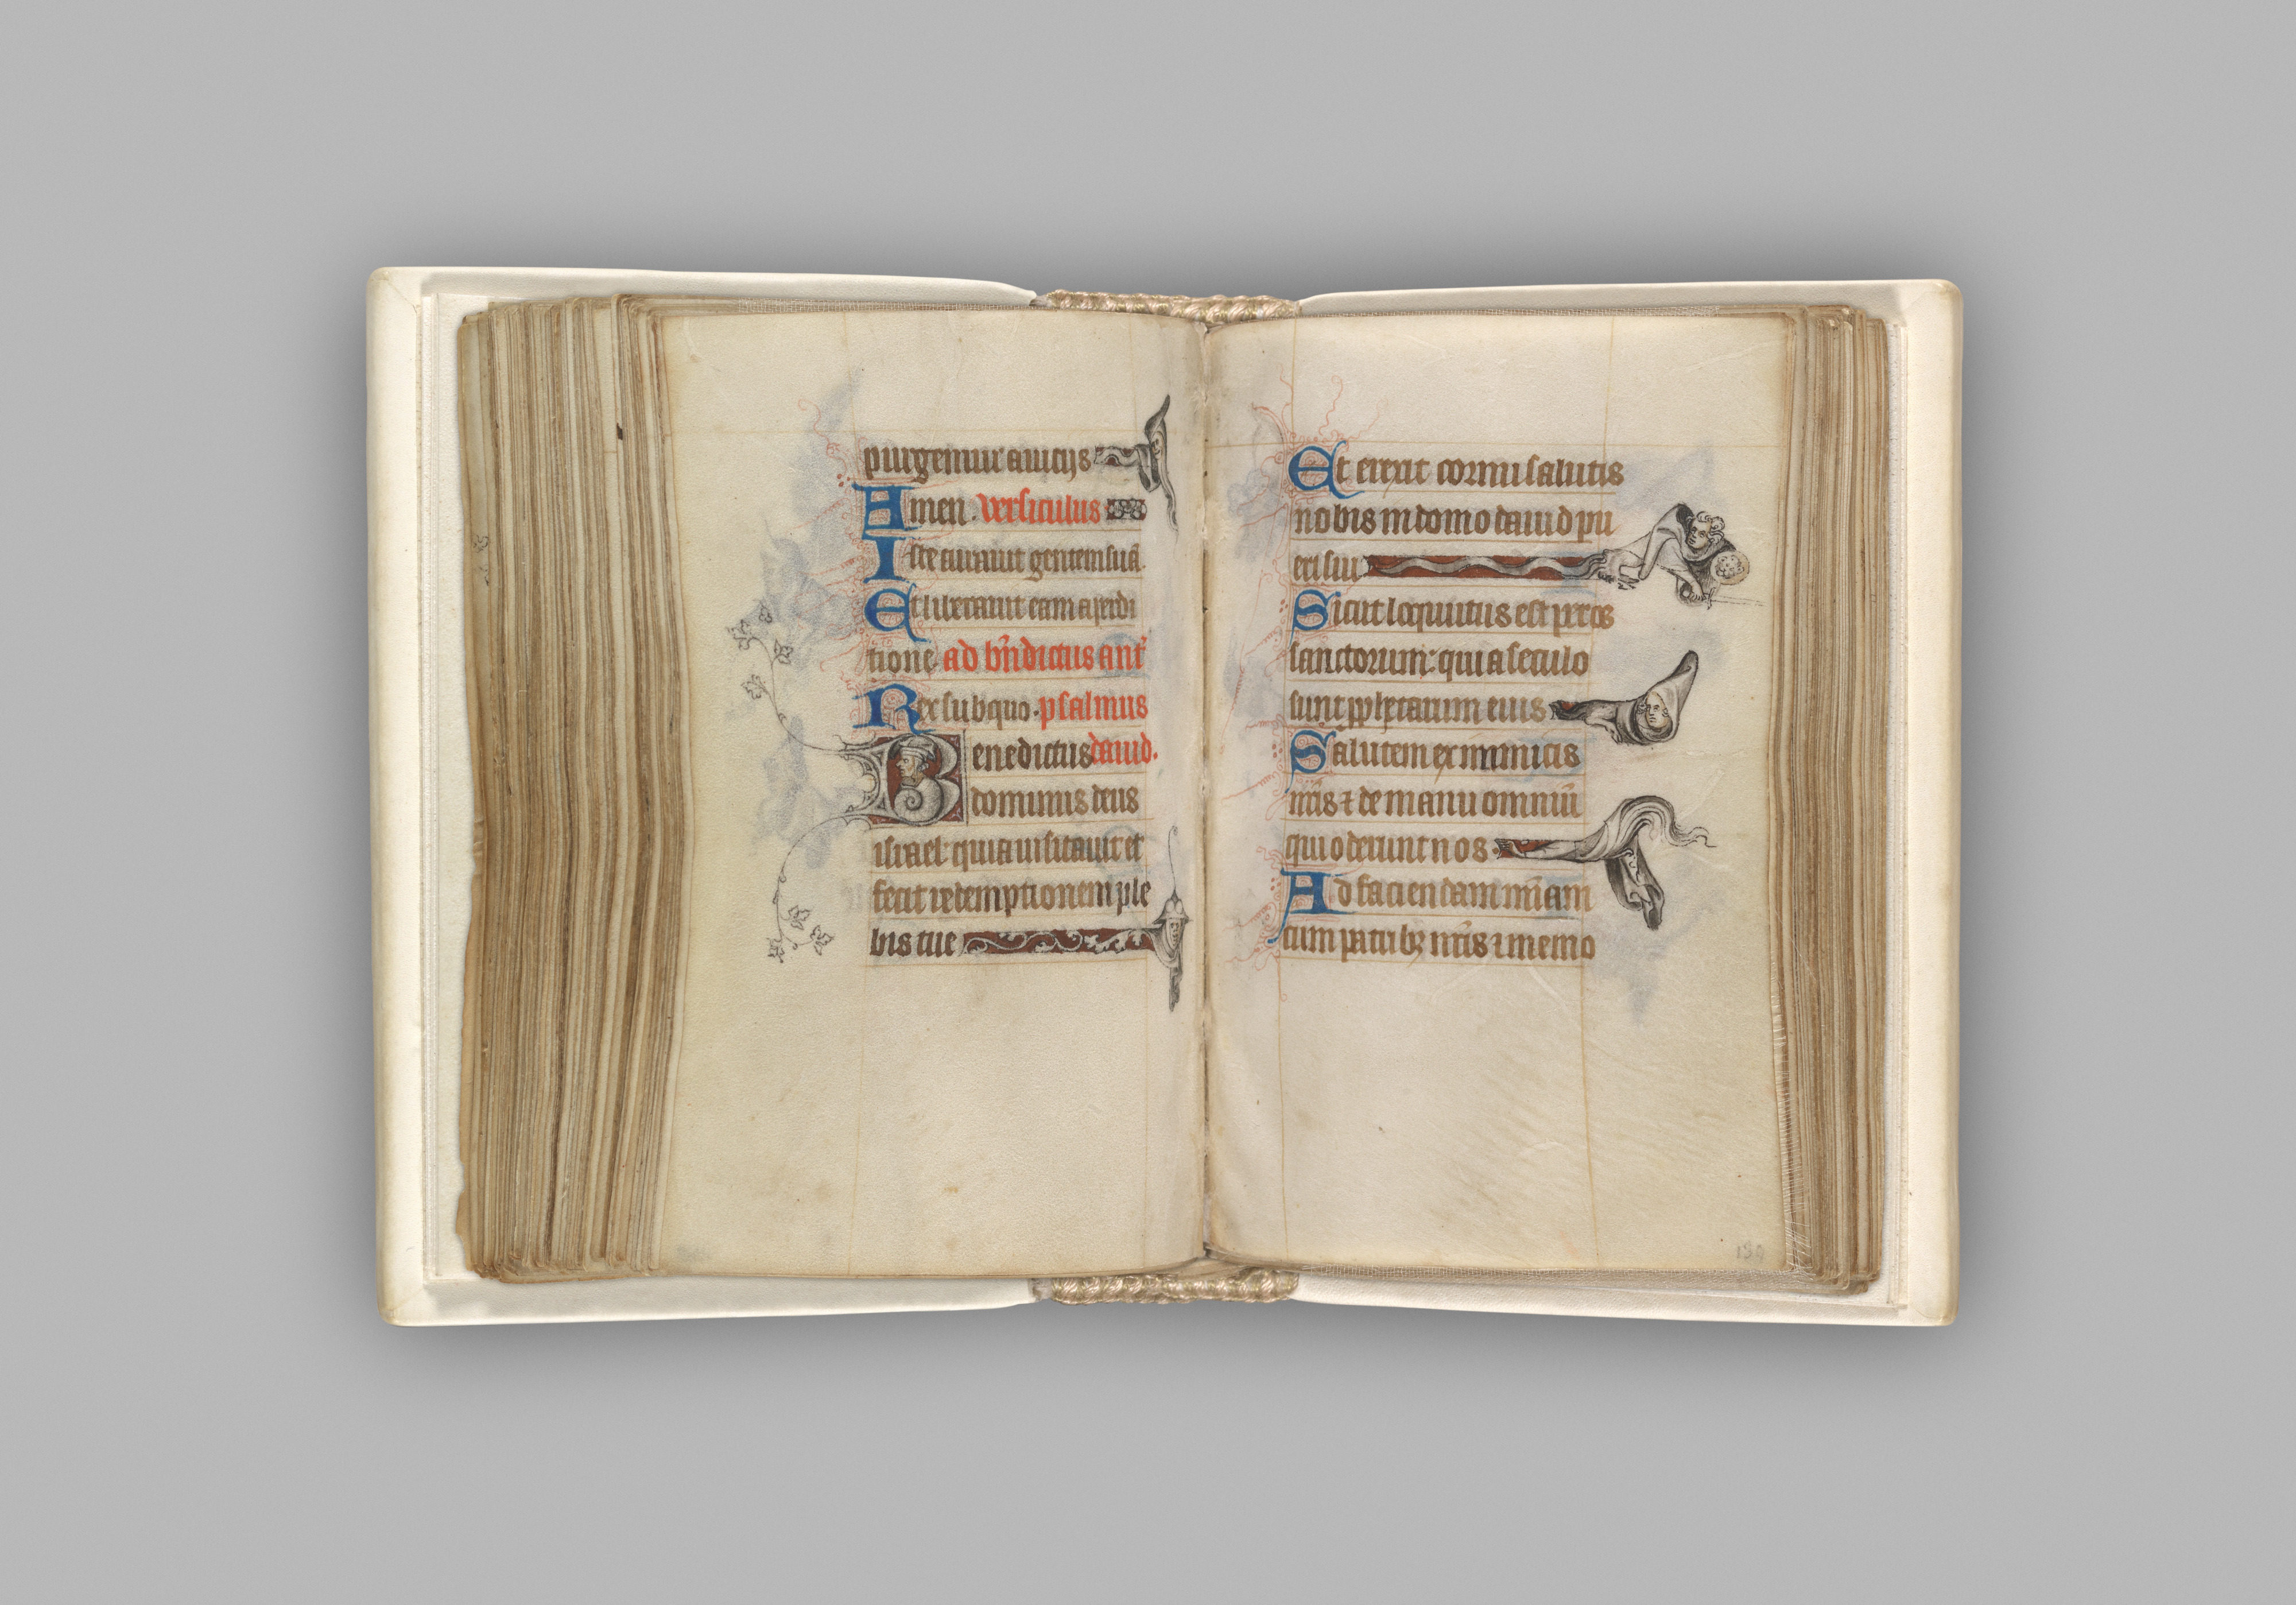 purgemur a uiciis
Amen. versiculus
Iste curauit gentem suā.
Et liberauit eam a perdi
tione. ad bn̄dictus ant̄
Rex sub quo. psalmus
Benedictus dauid.
dominus deus
israel: quia uisitauit et
fecit redemptionem ple
bis sue
Et erexit cornu salutis
nobis in domo dauid pu
eri sui.
Sicut loquutus est per os
sanctorum: qui a seculo
sunt pphetarum eius
Salutem ex inimicis
nr̄is ⁊ de manu omniū
qui oderunt nos.
Ad faciendam mīam
cum patribꝫ nr̄is ⁊ memo
180